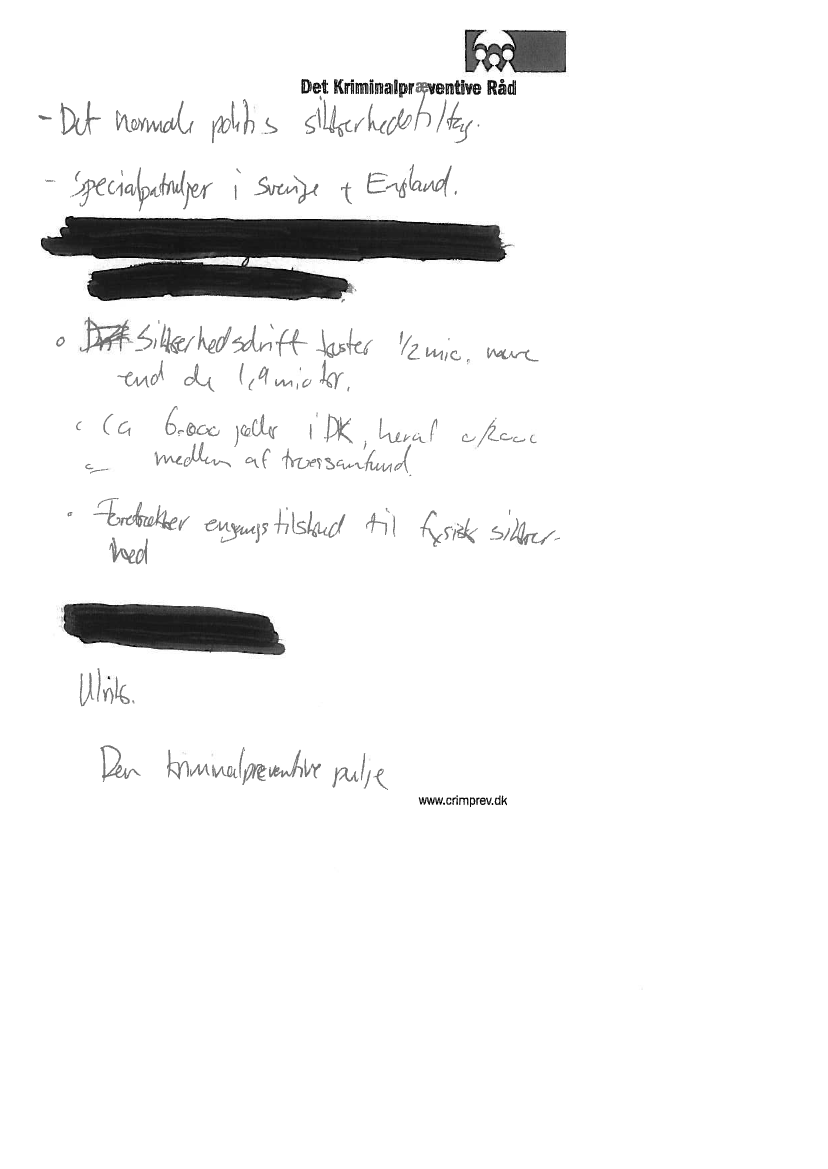 Det Kriminalpræventive Råd
- Det normale politis sikkerhedstiltag.
- Specialpatruljer i Sverige + England.
Sikkerhedsdrift koster 1/2 mio. mere
end de 1,9 mio kr.
Ca 6.000 jøder i DK, heraf
medlem af trossamfund
Foretrækker engangstilskud til fysisk sikker-
hed
Ulrik.
Den kriminalpreventive pulje
www.crimprev.dk